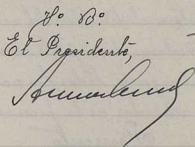 V.º B.º
El Presidente,